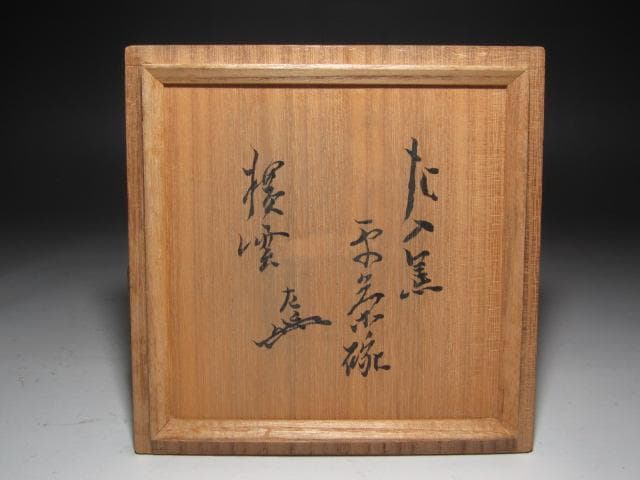 左入黒
平茶碗
横雲
左